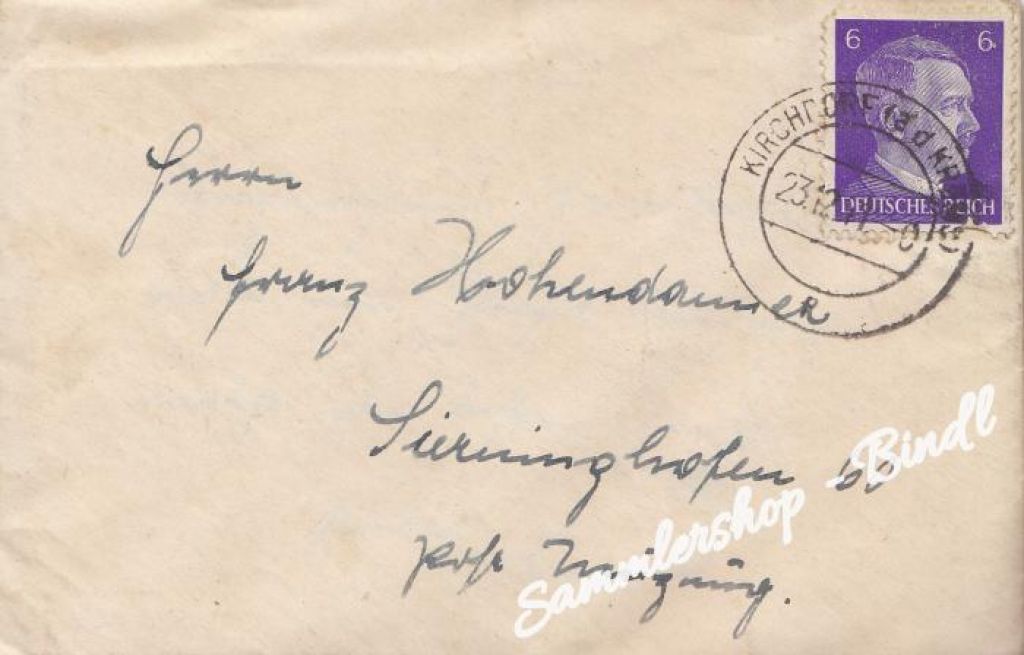 6 6
DEUTSCHES REICH
KIRCHDORF (a d KREMS)
23.12.
Herrn
Franz Hohendanner
Sierninghofen
Post
Sammlershop - Bindl